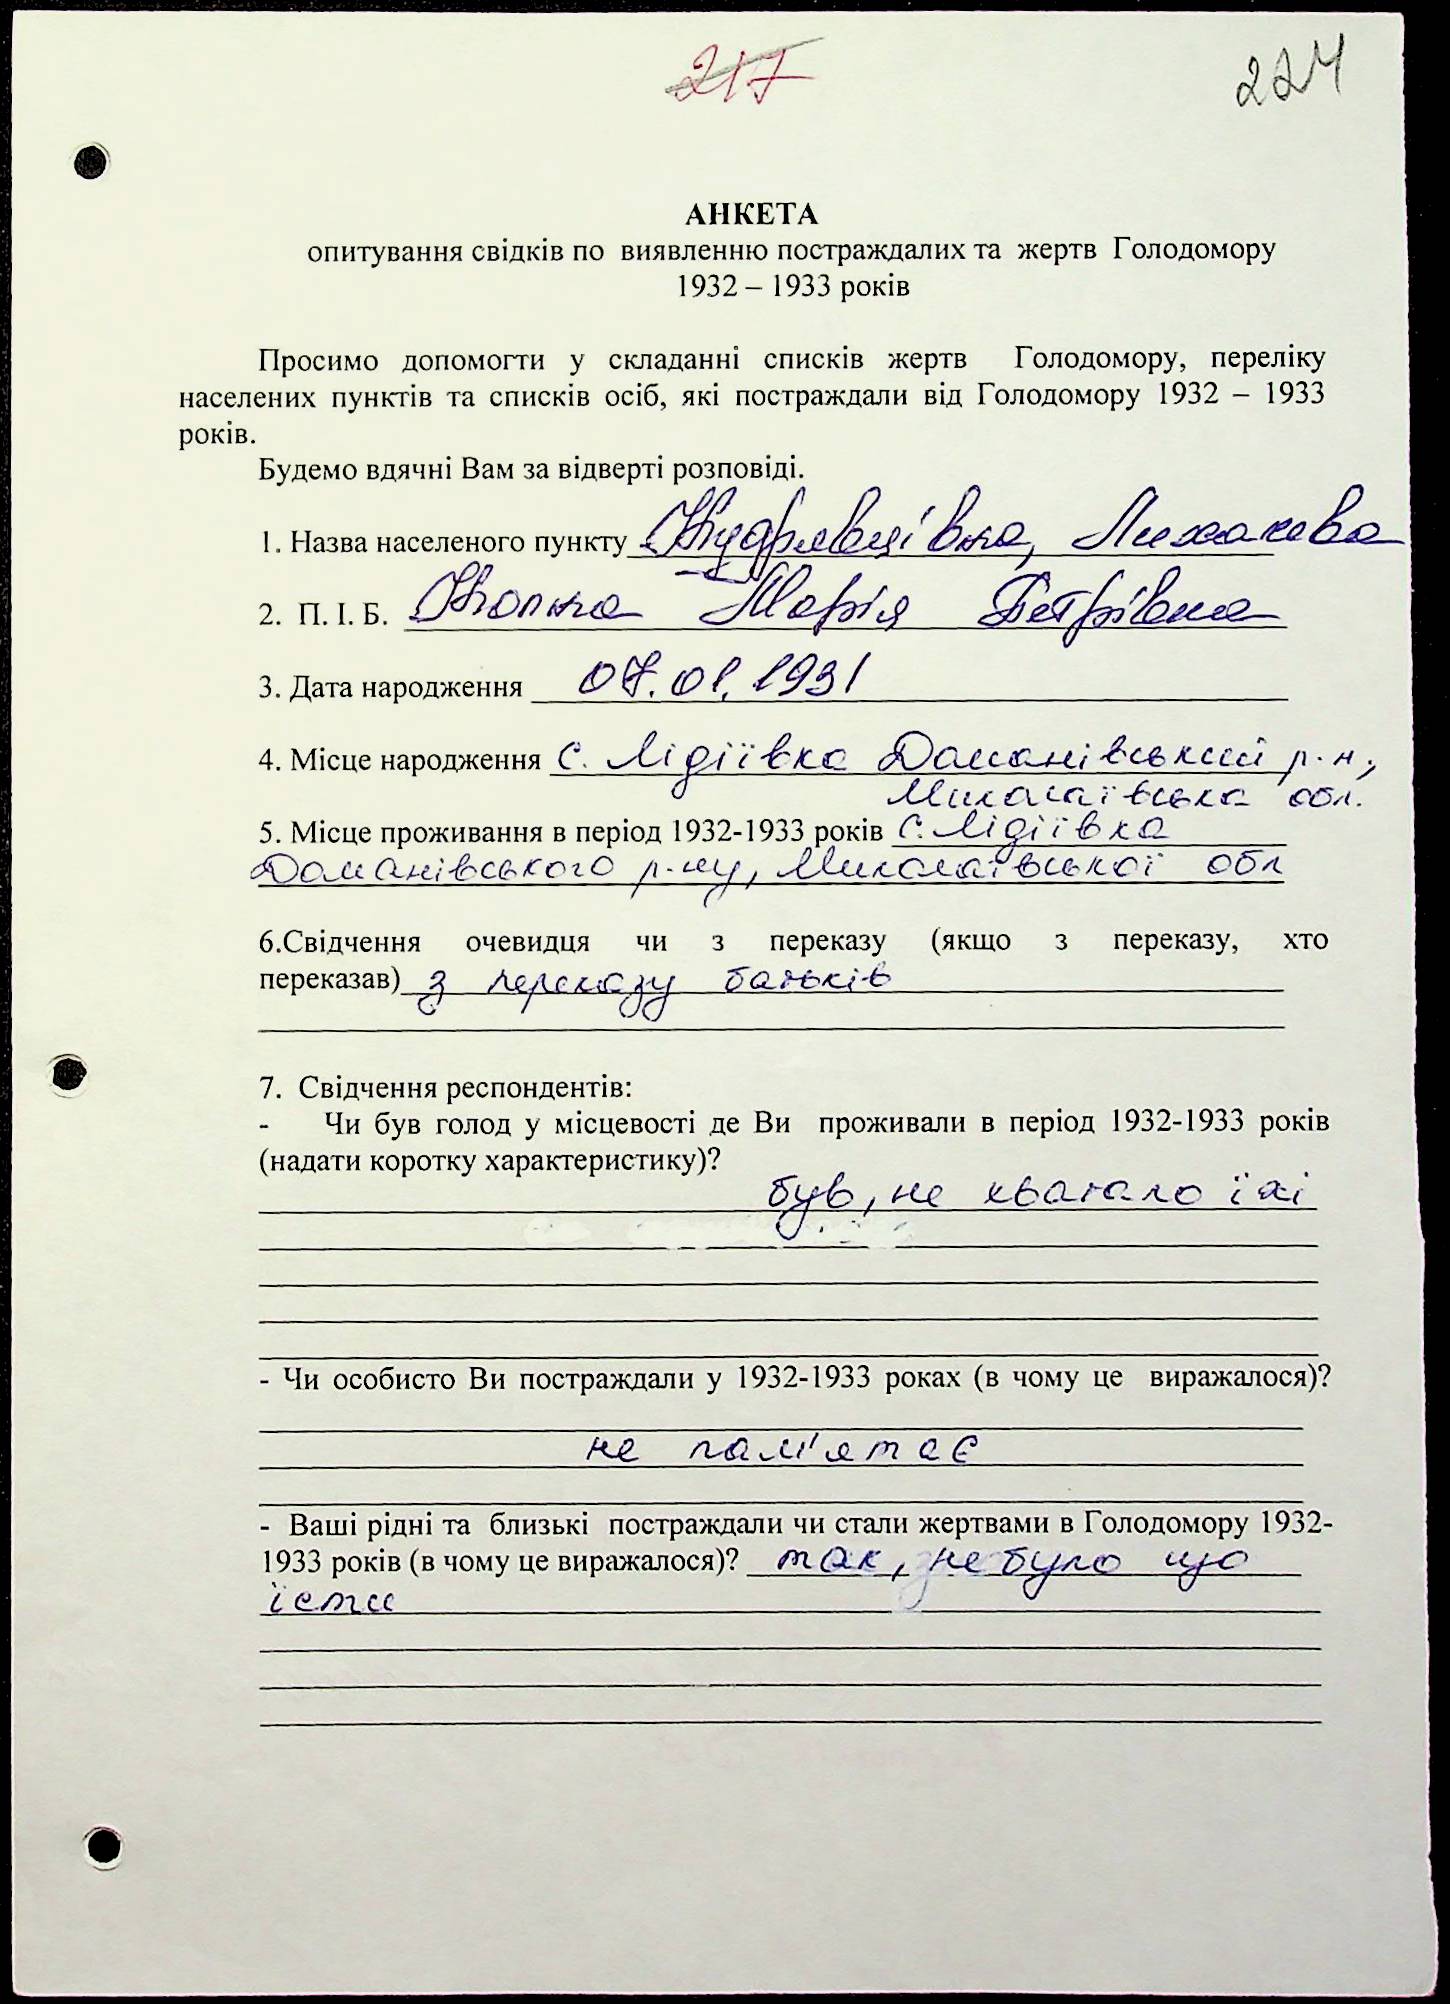 217
224
АНКЕТА
опитування свідків по виявленню постраждалих та жертв Голодомору
1932 – 1933 років
Просимо допомогти у складанні списків жертв Голодомору, переліку
населених пунктів та списків осіб, які постраждали від Голодомору 1932 – 1933
років.
Будемо вдячні Вам за відверті розповіді.
1. Назва населеного пункту Кудрявцівка,
2. П. І. Б. Марія Петрівна
3. Дата народження 07.01.1931
4. Місце народження с. Лідіївка Доманівський р-н,
Миколаївська обл.
5. Місце проживання в період 1932-1933 років с. Лідіївка
Доманівського р-ну, Миколаївської обл
6.Свідчення очевидця чи з переказу (якщо з переказу, хто
переказав) з переказу батьків
7. Свідчення респондентів:
- Чи був голод у місцевості де Ви проживали в період 1932-1933 років
(надати коротку характеристику)?
був, не хватало їжі
- Чи особисто Ви постраждали у 1932-1933 роках (в чому це виражалося)?
не пам'ятає
- Ваші рідні та близькі постраждали чи стали жертвами в Голодомору 1932-
1933 років (в чому це виражалося)? так, не було що
їсти